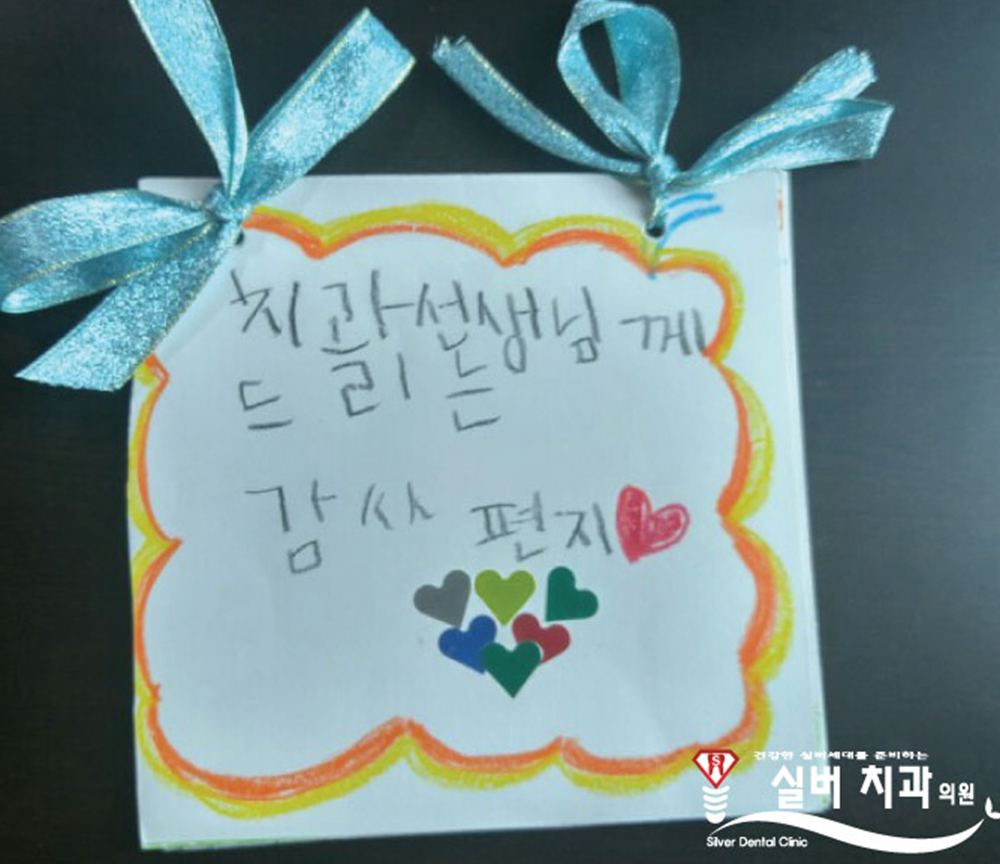 치콰선생님께
드리는
감사 편지
건강한 실버세대를 준비하는
실버 치과 의원
Silver Dental Clinic